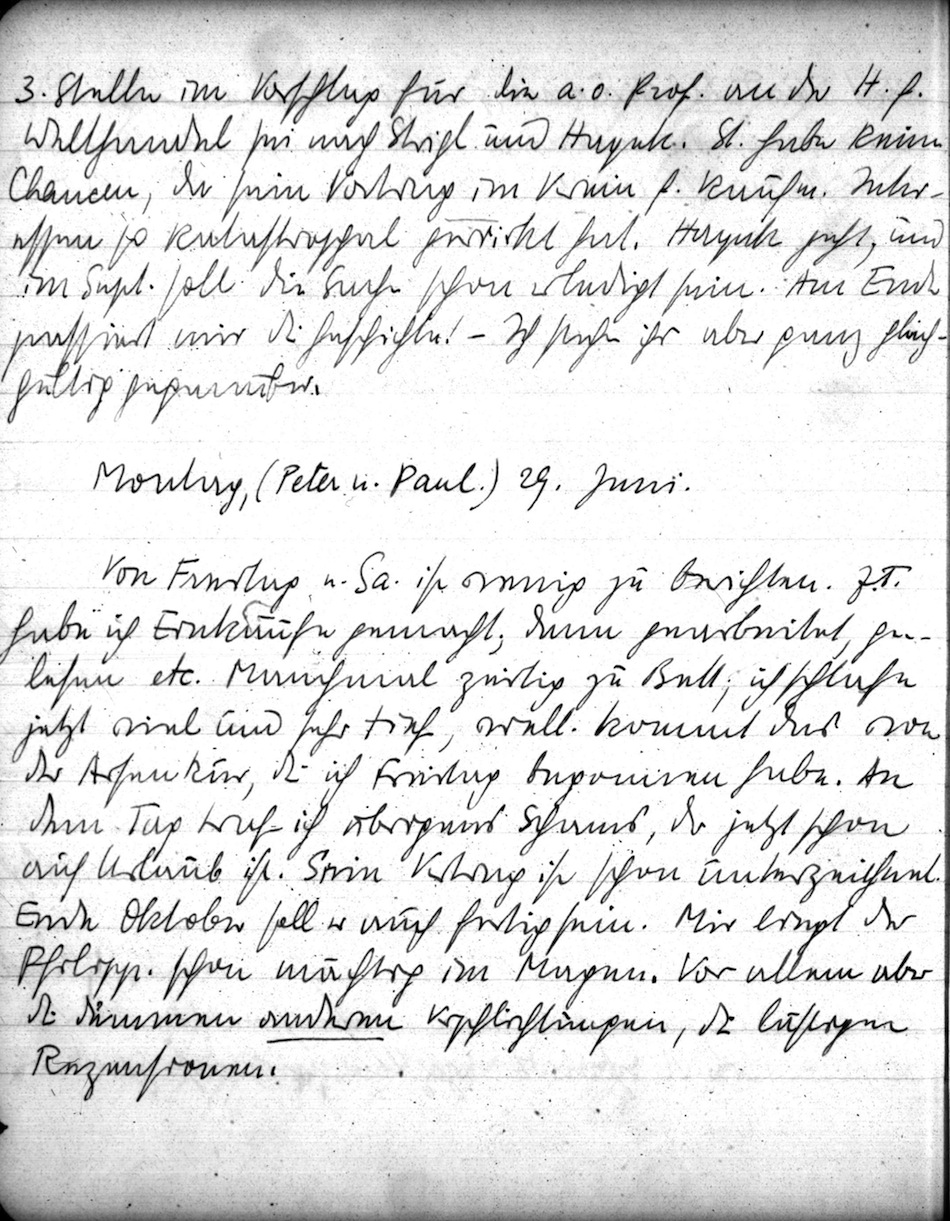 3. Stelle im Vorschlag für die a.o. Prof. an der H. f.
Welthandel sei nach Strigl und Hayek. St. habe keine
Chancen, da sein Vortrag im Verein f. kaufm. Inter-
essen so katastrophal gewirkt hat. Hayek geht, und
im Sept. soll die Sache schon erledigt sein. Am Ende
passiert mir die Geschichte! – Ich stehe ihr aber ganz gleich-
gültig gegenüber.
Montag, (Peter u. Paul.) 29. Juni.
Von Freitag u. Sa. ist wenig zu berichten. z.T.
habe ich Einkäufe gemacht, dann gearbeitet, ge-
lesen etc. Manchmal zeitig zu Bett; ich schlafe
jetzt viel und sehr tief, vielI. kommt das von
der Arsenkur, die ich Freitag begonnen habe. An
dem Tag traf ich übrigens Schams, der jetzt schon
auf Urlaub ist. Sein Vertrag ist schon unterzeichnet.
Ende Oktober soll er auch fertig sein. Mir liegt der
Philipp. schon mächtig im Magen. Vor allem aber
die dummen anderen Verpflichtungen, die lästigen
Rezensionen.